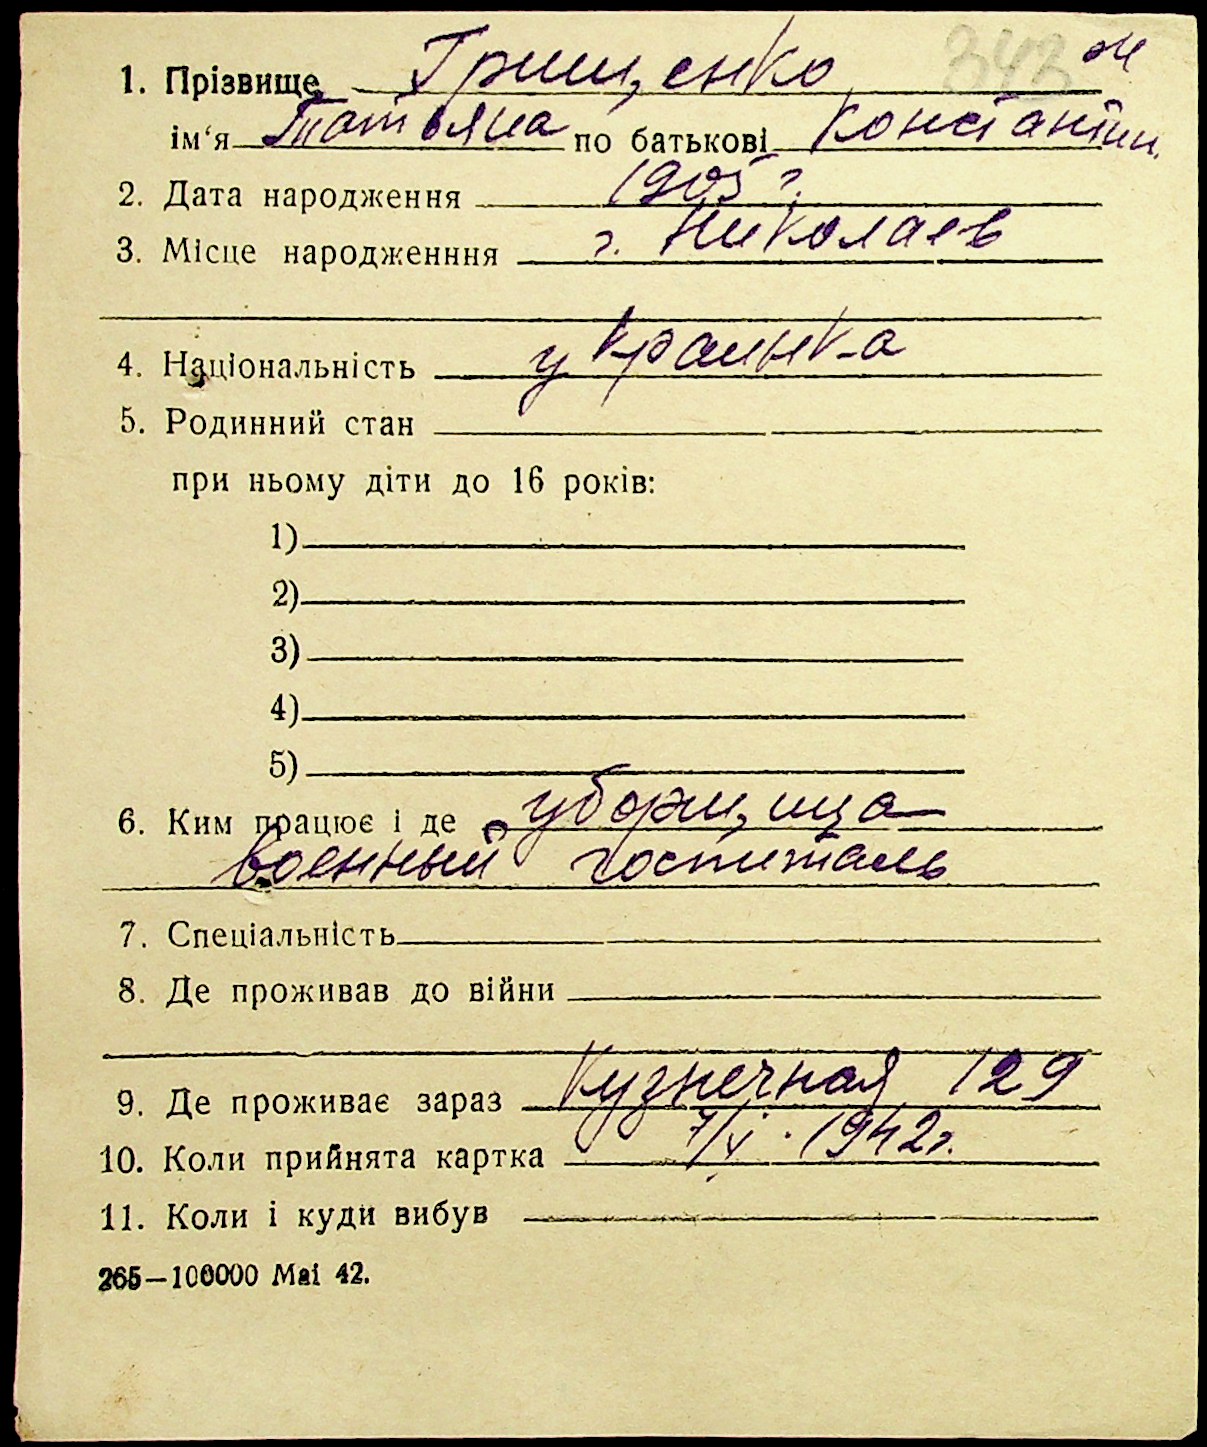 343 ж
1. Прізвище Грищенко
ім'я Татьяна по батькові Константин.
2. Дата народження 1905 г.
3. Місце народженння г. Николаев
4. Національність украинка
5. Родинний стан
при ньому діти до 16 років:
1)
2)
3)
4)
5)
6. Ким працює і де уборщица
военный госпиталь
7. Спеціальність
8. Де проживав до війни
9. Де проживає зараз Кузнечная 129
10. Коли прийнята картка 7/V. 1942г.
11. Коли і куди вибув
265—100000 Mai 42.